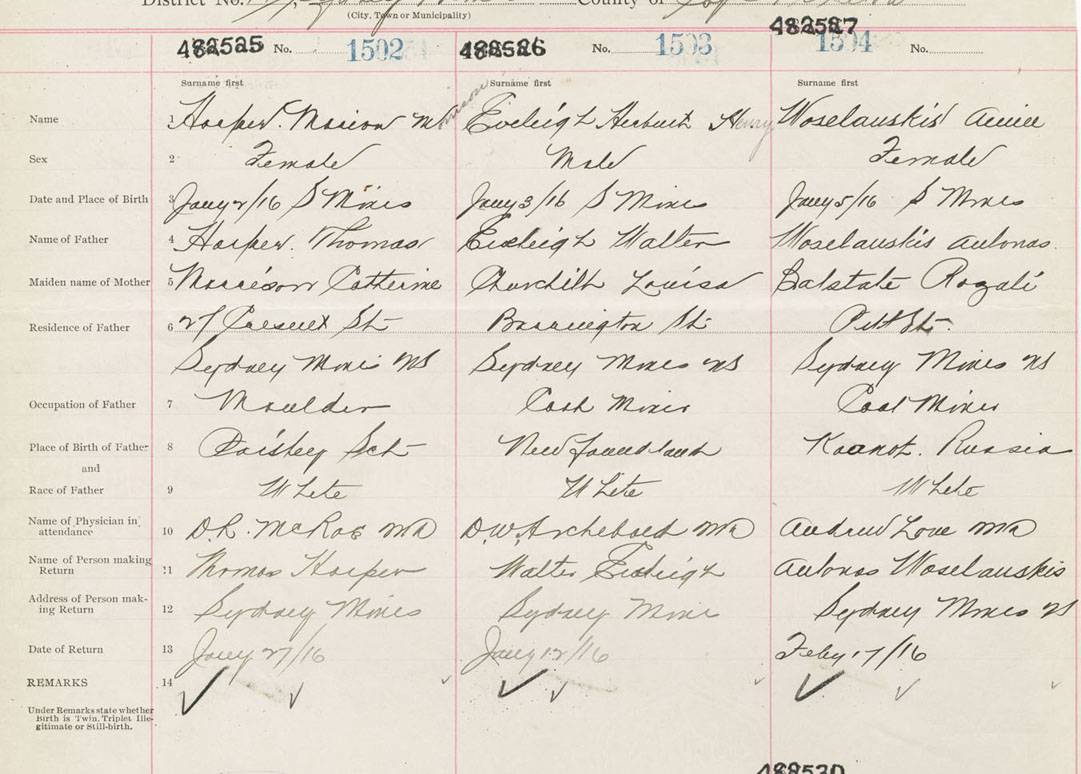 District No. County of
(City, Town or Municipality)
482525 No. 1502 482526 No. 1503 482527 1504 No.
Surname first Surname first Surname first
Name 1 Harper Marion M Eveleigh Herbert Henry Woselauskis
Sex 2 Female Male Female
Date and Place of Birth 3 Jany 2/16 S Mines Jany 3/16 S Mines Jany 5/16 S Mines
Name of Father 4 Harper. Thomas Eveleigh Walter Woselauskis Antonas
Maiden name of Mother 5 Morrison Catherine Churchill Louisa Balstate Rozali
Residence of Father 6 27 Crescent St Barrington St Pitt St.
Sydney Mines NS Sydney Mines NS Sydney Mines NS
Occupation of Father 7 Moulder Coal Miner Coal Miner
Place of Birth of Father 8 Paisley Sct Newfoundland Russia
and
Race of Father 9 White White White
Name of Physician in attendance 10 D.R. McRae MD D.W. Archibald MD Andrew Love MD
Name of Person making Return 11 Thomas Harper Walter Eveleigh Antonas Woselauskis
Address of Person making Return 12 Sydney Mines Sydney Mines Sydney Mines NS
Date of Return 13 Jany 27/16 Jany 12/16 Feby 17/16
REMARKS 14
Under Remarks state whether
Birth is Twin, Triplet Ille-
gitimate or Still-birth.
488530